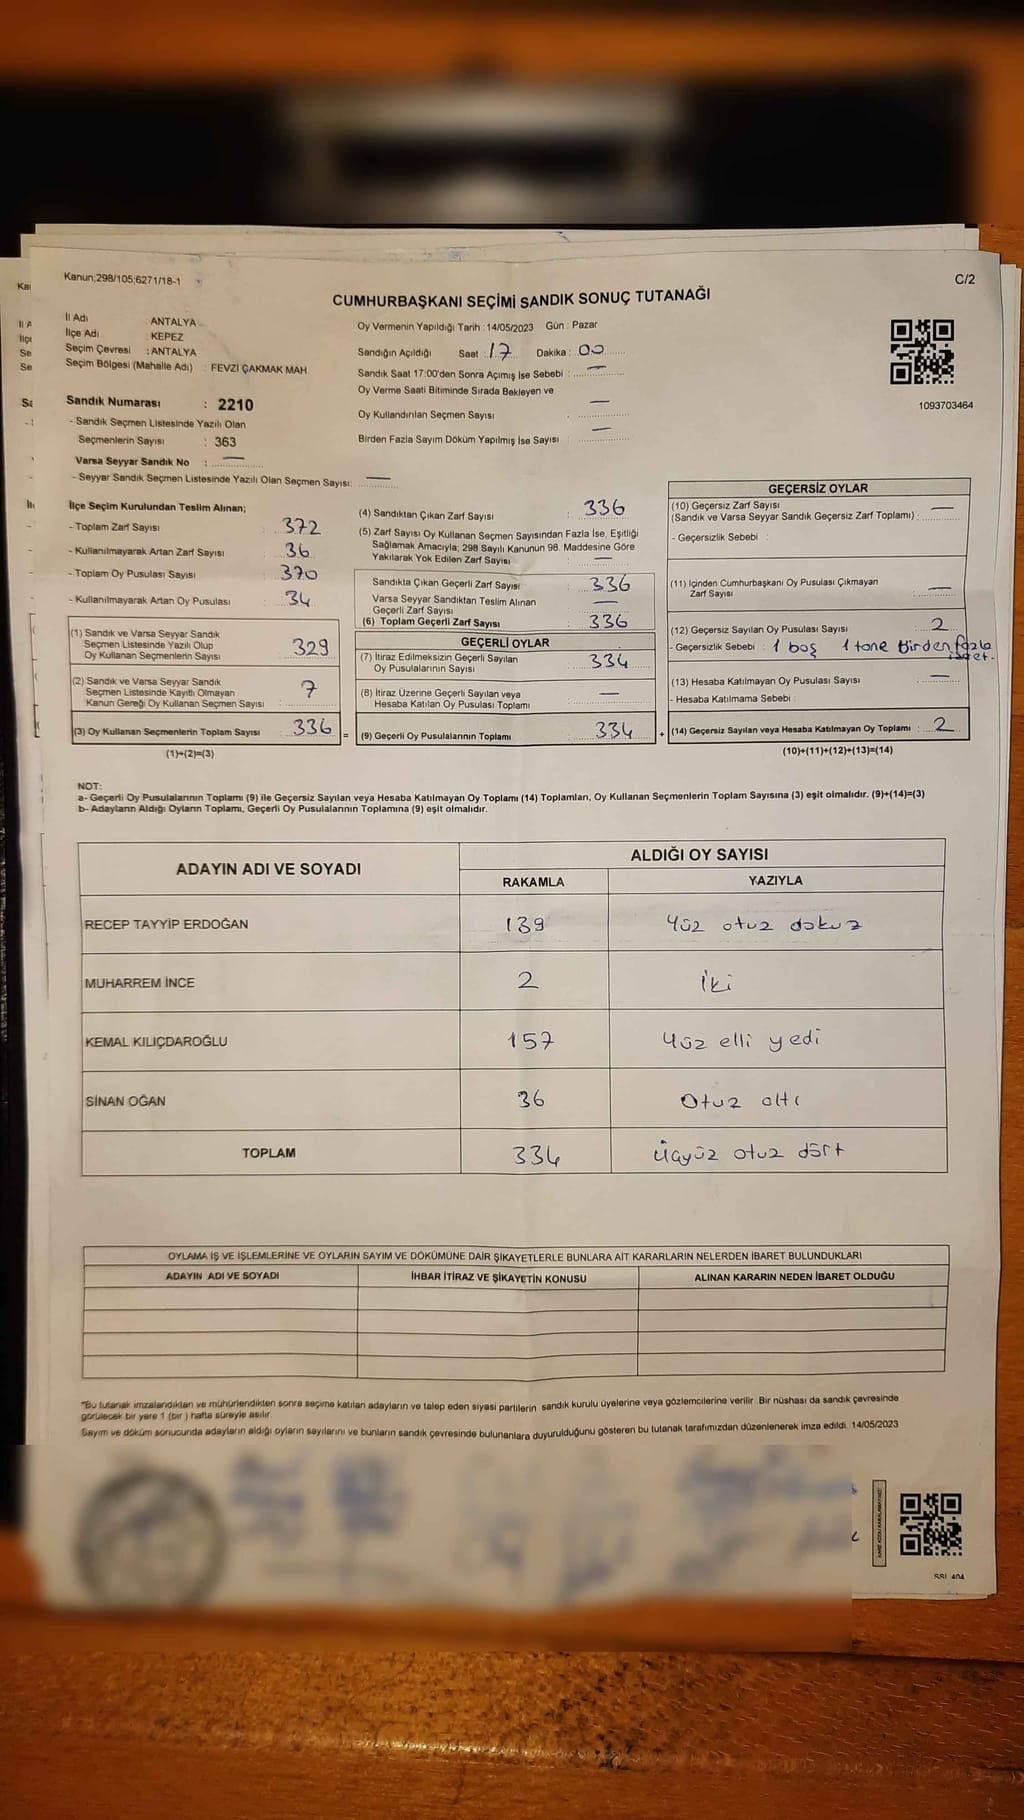 Kanun;298/105;6271/18-1
C/2
CUMHURBAŞKANI SEÇİMİ SANDIK SONUÇ TUTANAĞI
İl Adı : ANTALYA
İlçe Adı : KEPEZ
Seçim Çevresi : ANTALYA
Seçim Bölgesi (Mahalle Adı) : FEVZİ ÇAKMAK MAH.
Sandık Numarası : 2210
- Sandık Seçmen Listesinde Yazılı Olan
Seçmenlerin Sayısı : 363
Varsa Seyyar Sandık No : —
- Seyyar Sandık Seçmen Listesinde Yazılı Olan Seçmen Sayısı: —
Oy Vermenin Yapıldığı Tarih : 14/05/2023 Gün : Pazar
Sandığın Açıldığı Saat : 17 Dakika : 00
Sandık Saat 17:00'den Sonra Açımış İse Sebebi : —
Oy Verme Saati Bitiminde Sırada Bekleyen ve
Oy Kullandırılan Seçmen Sayısı : —
Birden Fazla Sayım Döküm Yapılmış İse Sayısı : —
1093703464
İlçe Seçim Kurulundan Teslim Alınan;
- Toplam Zarf Sayısı : 372
- Kullanılmayarak Artan Zarf Sayısı : 36
- Toplam Oy Pusulası Sayısı : 370
- Kullanılmayarak Artan Oy Pusulası : 34
(1) Sandık ve Varsa Seyyar Sandık
Seçmen Listesinde Yazılı Olup
Oy Kullanan Seçmenlerin Sayısı : 329
(2) Sandık ve Varsa Seyyar Sandık
Seçmen Listesinde Kayıtlı Olmayan
Kanun Gereği Oy Kullanan Seçmen Sayısı : 7
(3) Oy Kullanan Seçmenlerin Toplam Sayısı : 336
(1)+(2)=(3)
(4) Sandıktan Çıkan Zarf Sayısı : 336
(5) Zarf Sayısı Oy Kullanan Seçmen Sayısından Fazla İse, Eşitliği
Sağlamak Amacıyla; 298 Sayılı Kanunun 98. Maddesine Göre
Yakılarak Yok Edilen Zarf Sayısı : —
Sandıkta Çıkan Geçerli Zarf Sayısı : 336
Varsa Seyyar Sandıktan Teslim Alınan
Geçerli Zarf Sayısı : —
(6) Toplam Geçerli Zarf Sayısı : 336
GEÇERLİ OYLAR
(7) İtiraz Edilmeksizin Geçerli Sayılan
Oy Pusulalarının Sayısı : 334
(8) İtiraz Üzerine Geçerli Sayılan veya
Hesaba Katılan Oy Pusulası Toplamı : —
= (9) Geçerli Oy Pusulalarının Toplamı : 334
GEÇERSİZ OYLAR
(10) Geçersiz Zarf Sayısı
(Sandık ve Varsa Seyyar Sandık Geçersiz Zarf Toplamı) : —
- Geçersizlik Sebebi :
(11) İçinden Cumhurbaşkanı Oy Pusulası Çıkmayan
Zarf Sayısı : —
(12) Geçersiz Sayılan Oy Pusulası Sayısı : 2
- Geçersizlik Sebebi : 1 boş 1 tane birden fazla
(13) Hesaba Katılmayan Oy Pusulası Sayısı : —
- Hesaba Katılmama Sebebi :
+ (14) Geçersiz Sayılan veya Hesaba Katılmayan Oy Toplamı : 2
(10)+(11)+(12)+(13)=(14)
NOT:
a- Geçerli Oy Pusulalarının Toplamı (9) ile Geçersiz Sayılan veya Hesaba Katılmayan Oy Toplamı (14) Toplamları, Oy Kullanan Seçmenlerin Toplam Sayısına (3) eşit olmalıdır. (9)+(14)=(3)
b- Adayların Aldığı Oyların Toplamı, Geçerli Oy Pusulalarının Toplamına (9) eşit olmalıdır.
ADAYIN ADI VE SOYADI ALDIĞI OY SAYISI
RAKAMLA YAZIYLA
RECEP TAYYİP ERDOĞAN 139 Yüz otuz dokuz
MUHARREM İNCE 2 İki
KEMAL KILIÇDAROĞLU 157 Yüz elli yedi
SİNAN OĞAN 36 Otuz altı
TOPLAM 334 Üçyüz otuz dört
OYLAMA İŞ VE İŞLEMLERİNE VE OYLARIN SAYIM VE DÖKÜMÜNE DAİR ŞİKAYETLERLE BUNLARA AİT KARARLARIN NELERDEN İBARET BULUNDUKLARI
ADAYIN ADI VE SOYADI İHBAR İTİRAZ VE ŞİKAYETİN KONUSU ALINAN KARARIN NEDEN İBARET OLDUĞU
"Bu tutanak imzalandıktan ve mühürlendikten sonra seçime katılan adayların ve talep eden siyasi partilerin sandık kurulu üyelerine veya gözlemcilerine verilir. Bir nüshası da sandık çevresinde
görülecek bir yere 1 (bir ) hafta süreyle asılır.
Sayım ve döküm sonucunda adayların aldığı oyların sayılarını ve bunların sandık çevresinde bulunanlara duyurulduğunu gösteren bu tutanak tarafımızdan düzenlenerek imza edildi. 14/05/2023